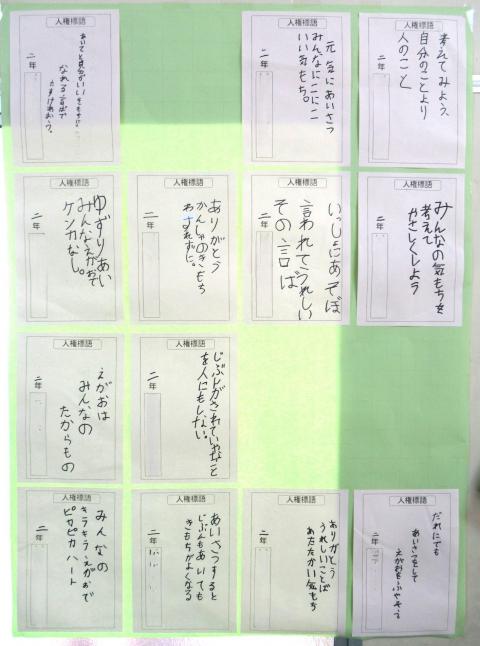 人権標語
考えてみよう、
自分のことより
人のこと
人権標語
元気にあいさつ
みんなにこにこ
いい気もち。
二年
人権標語
あいてと自分がいいきもちに
なれる言ばで
たすけあおう。
二年
人権標語
みんなの気もちを
考えて
やさしくしよう
人権標語
いっしょにあそぼ
言われてうれしい
その言ば
二年
人権標語
ありがとう
かんしゃのきもち
わすれずに。
二年
人権標語
ゆずりあい
みんなえがおで
ケンカなし。
二年
人権標語
じぶんがされていやなこと
を人にもしない。
二年
人権標語
えがおは
みんなの
たからもの
二年
人権標語
だれにでも
あいさつをして
えがおをふやそう
二年
人権標語
ありがとう
うれしいことば
あたたかい気もち
二年
人権標語
あいさつすると
じぶんもあいても
きもちがよくなる
二年
人権標語
みんなの
キラキラえがおで
ピカピカハート
二年